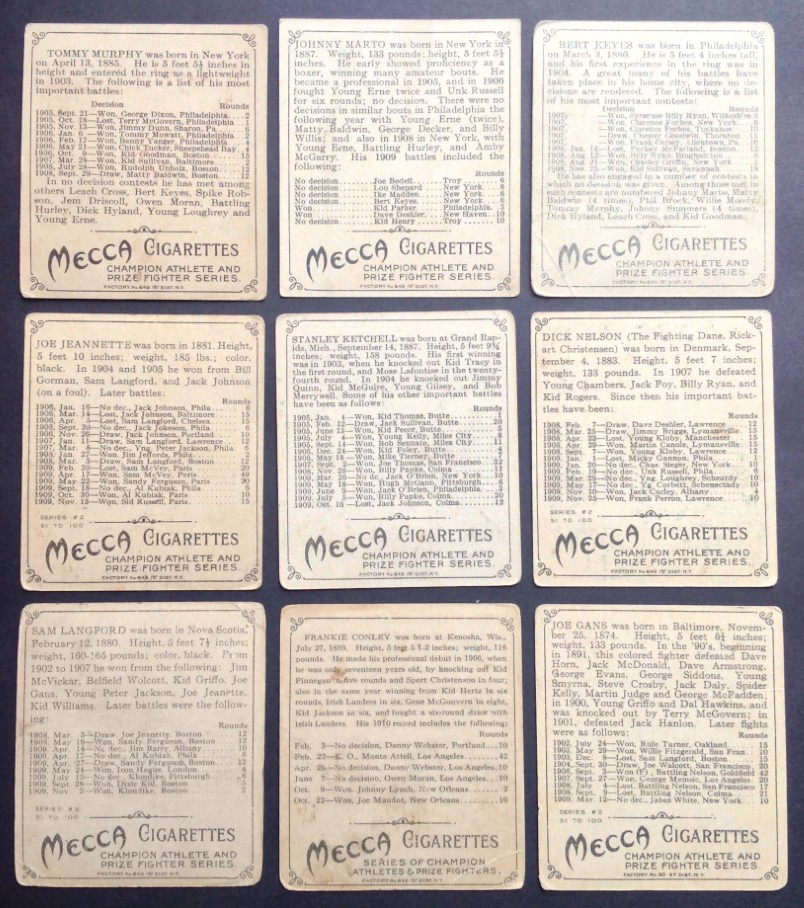 TOMMY MURPHY was born in New York
on April 13, 1885. He is 5 feet 5½ inches in
height and entered the ring as a lightweight
in 1903. The following is a list of his most
important battles:
Decision Rounds
1905, Sept. 21—Won, George Dixon, Philadelphia...2
1905, Oct. 18—Lost, Terry McGovern, Philadelphia.1
1905, Nov. 13—Won, Jimmy Dunn, Sharon, Pa.
1906, Jan. 6—Won, Tommy Mowatt, Philadelphia.2
1906, Feb. 17—Won, Benny Yanger, Philadelphia.4
1906, May 21—Won, Chick Tucker, Sheepshead Bay.
1906, Oct. —Won, Kid Goodman, Boston 15
1907, Mar. 28—Won, Kid Sullivan, Baltimore
1908, July 28—Won, Rudolph Unholz, Boston 12
1908, Sept. 29—Draw, Matty Baldwin, Boston 12
In no decision contests he has met among
others Leach Cross, Bert Keyes, Spike Rob-
son, Jem Driscoll, Owen Moran, Battling
Hurley, Dick Hyland, Young Loughrey and
Young Erne.
MECCA CIGARETTES
CHAMPION ATHLETE AND
PRIZE FIGHTER SERIES.
FACTORY No. 649 1ST DIST. N.Y.
JOHNNY MARTO was born in New York in
1887. Weight, 133 pounds; height, 5 feet 5½
inches. He early showed proficiency as a
boxer, winning many amateur bouts. He
became a professional in 1905, and in 1906
fought Young Erne twice and Unk Russell
for six rounds; no decision. There were no
decisions in similar bouts in Philadelphia the
following year with Young Erne (twice),
Matty Baldwin, George Decker, and Billy
Willis; and also in 1908 in New York, with
Young Erne, Battling Hurley, and Amby
McGarry. His 1909 battles included the
following:
Rounds
No decision Joe Bedell Troy 6
No decision Lou Shepard New York 6
No decision Ike Madden New York 6
No decision Bert Keyes New York 6
Won Kid Parker Philadelphia. 3
Won Dave Deshler New Haven 10
No decision Kid Henry Troy 10
MECCA CIGARETTES
CHAMPION ATHLETE AND
PRIZE FIGHTER SERIES.
FACTORY No. 649 1ST DIST. N.Y.
BERT KEYES was born in Philadelphia
on March 3, 1886. He is 5 feet 4 inches tall,
and his first experience in the ring was in
1904. A great many of his battles have
taken place in his home city, where no de-
cisions are rendered. The following is a list
of his most important contests:
Decision Rounds
1907, —Won, Syracuse Billy Ryan, Wilkesb're 6
—Won, Clarence Forbes, New York
1907, —Won, Clarence Forbes, Tuckahoe 10
1907, —Draw, Chester Goodwin, Thornton
1907, —Won, Frank Carey, Allentown, Pa.
1908, Jan. 14—Lost, Packey McFarland, Boston
1908, Aug. 12—Won, Billy Ryan, Binghamton
1908, Aug. 21—Won, Charley Griffin, New York
1908, Nov. 23—Won, Kid Sullivan, Savannah
He has also engaged in a number of contests in
which no decision was given. Among those met in
such contests are numbered Johnny Marto, Matty
Baldwin (4 times), Phil Brock, Willie Moody,
Tommy Murphy, Johnny Summers (4 times),
Dick Hyland, Leach Cross, and Kid Goodman.
MECCA CIGARETTES
CHAMPION ATHLETE AND
PRIZE FIGHTER SERIES.
FACTORY No. 649 1ST DIST. N.Y.
JOE JEANNETTE was born in 1881. Height,
5 feet 10 inches; weight, 185 lbs.; color,
black. In 1904 and 1905 he won from Bill
Gorman, Sam Langford, and Jack Johnson
(on a foul). Later battles:
Rounds
1906, Jan. 16—No dec., Jack Johnson, Phila 6
1906, Mar. 14—Lost, Jack Johnson, Baltimore 15
1906, Apr. 5—Lost, Sam Langford, Chelsea 15
1906, Sept. 20—No dec., Jack Johnson, Phila 6
1906, Nov. 26—Draw, Jack Johnson, Portland 10
1907, Jan. 11—Draw, Sam Langford, Lawrence 12
1907, Mar. 4—No dec., Yng. Peter Jackson, Phila. 6
1908, Jan. 27—Won, Jim Jeffords, Phila 2
1908, Mar. 3—Draw, Sam Langford, Boston 12
1909, Feb. 20—Lost, Sam McVey, Paris 20
1909, Apr. 17—Won, Sam McVey, Paris 49
1909, May 22—Won, Sandy Ferguson, Paris 20
1909, Sept. —No dec., Al Kubiak, Phila 6
1909, Oct. 30—Won, Al Kubiak, Paris 10
1909, Nov. 13—Won, Sid Russell, Paris 15
SERIES #2
51 TO 100
MECCA CIGARETTES
CHAMPION ATHLETE AND
PRIZE FIGHTER SERIES.
FACTORY No. 649 1ST DIST. N.Y.
STANLEY KETCHELL was born at Grand Rap-
ids, Mich., September 14, 1887. Height, 5 feet 9¾
inches; weight, 158 pounds. His first winning
was in 1903, when he knocked out Kid Tracy in
the first round, and Mose Lafontise in the twenty-
fourth round. In 1904 he knocked out Jimmy
Quinn, Kid McGuire, Young Gilsey, and Bob
Merrywell. Some of his other important battles
have been as follows:
Rounds
1905, Jan. 4—Won, Kid Thomas, Butte 1
1905, Feb. 12—Draw, Jack Sullivan, Butte 20
1905, June 13—Won, Kid Pecor, Butte 5
1905, July 4—Won, Young Kelly, Miles City 8
1905, Sept. 14—Won, Bob Sennate, Miles City 11
1905, Dec. 24—Won, Kid Foley, Butte 4
1906, May 18—Won, Mike Tierney, Butte 4
1907, Sept. 2—Won, Joe Thomas, San Francisco 32
1908, Nov. 26—Won, Billy Papke, Colma 11
1909, Mar. 26—No dec., Jack O'Brien, New York 10
1909, May 18—Won, Hugh McGann, Pittsburg 6
1909, June 9—Won, Jack O'Brien, Philadelphia 3
1909, July 5—Won, Billy Papke, Colma 20
1909, Oct. 16—Lost, Jack Johnson, Colma 12
MECCA CIGARETTES
CHAMPION ATHLETE AND
PRIZE FIGHTER SERIES.
FACTORY No. 649 1ST DIST. N.Y.
DICK NELSON (The Fighting Dane, Rick-
art Christensen) was born in Denmark, Sep-
tember 4, 1883. Height, 5 feet 7 inches;
weight, 133 pounds. In 1907 he defeated
Young Chambers, Jack Foy, Billy Ryan, and
Kid Rogers. Since then his important bat-
tles have been:
Rounds
1908, Feb. 7—Draw, Dave Deshler, Lawrence 12
1908, Mar. 25—Draw, Jimmy Briggs, Lymansville 15
1908, Apr. 23—Lost, Young Kloby, Manchester 15
1908, Apr. 29—Won, Martin Canole, Lymansville 15
1908, Sept. 7—Won, Young Kloby, Lawrence 12
1909, Jan. 1—Lost, Micky Gannon, Phila 6
1909, Jan. 29—No dec., Chas. Sieger, New York 10
1909, Feb. 19—No dec., Unk Russell, Phila
1909, Mar. 29—No dec., Yng. Loughrey, Schen'tdy 10
1909, May 27—No dec., Yg. Corbett, Schenectady 10
1909, Nov. 10—Won, Jack Curley, Albany 4
1909, Nov. 25—Won, Frank Perron, Lawrence 10
SERIES #2
51 TO 100
MECCA CIGARETTES
CHAMPION ATHLETE AND
PRIZE FIGHTER SERIES.
FACTORY No. 649 1ST DIST. N.Y.
SAM LANGFORD was born in Nova Scotia,
February 12, 1880. Height, 5 feet 7½ inches;
weight, 160-165 pounds; color, black. From
1902 to 1907 he won from the following: Jim
McVickar, Belfield Wolcott, Kid Griffo, Joe
Gans, Young Peter Jackson, Joe Jeanette,
Kid Williams. Later battles were the follow-
ing:
Rounds
1908, Mar. 3—Draw, Joe Jeanette, Boston 12
1908, May 19—Won, Sandy Ferguson, Boston 12
1909, Apr. 14—No dec., Jim Barry, Albany 10
1909, Apr. 17—No dec., Al Kubiak, Phila
1909, Apr. 27—Draw, Sandy Ferguson, Boston 12
1909, May 24—Won, Iron Hague, London 4
1909, July 13—No dec., Klondike, Pittsburgh 6
1909, Sept. 28—Won, Dixie Kid, Boston 5
1909, Nov. 2—Won, Klondike, Boston 2
SERIES #2
51 TO 100
MECCA CIGARETTES
CHAMPION ATHLETE AND
PRIZE FIGHTER SERIES.
FACTORY No. 649 1ST DIST. N.Y.
FRANKIE CONLEY was born at Kenosha, Wis.,
July 27, 1889. Height, 5 feet 5 1-2 inches; weight, 116
pounds. He made his professional debut in 1906, when
he was only seventeen years old, by knocking out Kid
Finnegan in five rounds and Sport Christensen in four;
also in the same year winning from Kid Hertz in six
rounds, Irish Landers in six, Gene McGovern in eight,
Kid Jackson in six, and fought a six-round draw with
Irish Landers. His 1910 record includes the following:
Rounds
Feb. 3—No decision, Danny Webster, Portland 10
Feb. 22—K. O., Monte Attell, Los Angeles 42
Apr. 26—No decision, Danny Webster, Los Angeles 10
June 7—No decision, Owen Moran, Los Angeles 10
Oct. 9—Won, Johnny Lynch, New Orleans 2
Oct. 22—Won, Joe Mandot, New Orleans 10
MECCA CIGARETTES
SERIES OF CHAMPION
ATHLETES & PRIZE FIGHTERS.
FACTORY No. 649 1ST DIST. N.Y.
JOE GANS was born in Baltimore, Novem-
ber 25, 1874. Height, 5 feet 6¼ inches;
weight, 133 pounds. In the '90's, beginning
in 1891, this colored fighter defeated Dave
Horn, Jack McDonald, Dave Armstrong,
George Evans, George Siddons, Young
Smyrna, Steve Crosby, Jack Daly, Spider
Kelly, Martin Judge and George McFadden;
in 1900, Young Griffo and Dal Hawkins, and
was knocked out by Terry McGovern; in
1901, defeated Jack Hanlon. Later fights
were as follows:
Rounds
1902, July 24—Won, Rufe Turner, Oakland 15
1903, May 29—Won, Willie Fitzgerald, San Fran. 10
1903, Dec. 8—Lost, Sam Langford, Boston 15
1904, Sept. 30—Draw, Joe Walcott, San Francisco 20
1906, Sept. 3—Won (F), Battling Nelson, Goldfield 42
1907, Sept. 27—Won, George Memsic, Los Angeles 20
1908, July 4—Lost, Battling Nelson, San Francisco 17
1908, Sept. 9—Lost, Battling Nelson, Colma 21
1909, Mar. 12—No dec., Jabez White, New York 10
SERIES #2
51 TO 100
MECCA CIGARETTES
CHAMPION ATHLETE AND
PRIZE FIGHTER SERIES.
FACTORY No. 30 2ND DIST. N.Y.